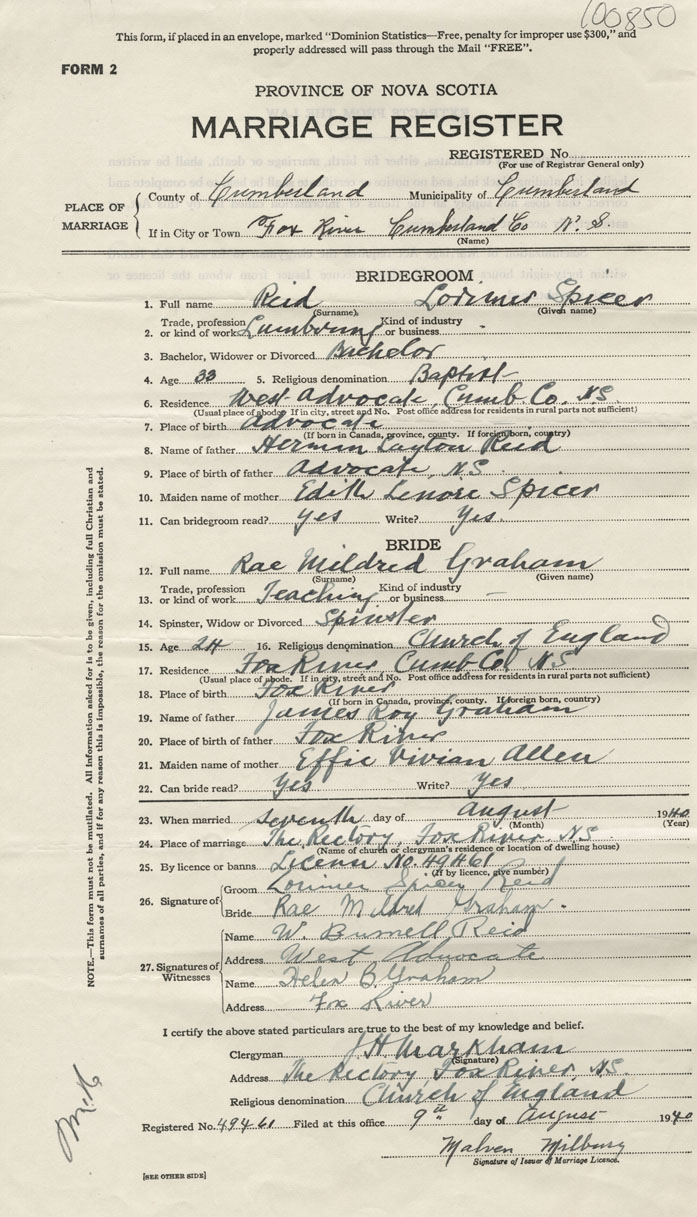 100850
This form, if placed in an envelope, marked "Dominion Statistics—Free, penalty for improper use $300," and
properly addressed will pass through the Mail "FREE".
FORM 2
PROVINCE OF NOVA SCOTIA
MARRIAGE REGISTER
REGISTERED No.
(For use of Registrar General only)
PLACE OF MARRIAGE
County of Cumberland Municipality of Cumberland
If in City or Town Fox River Cumberland Co N. S.
(Name)
BRIDEGROOM
1. Full name Reid Lorimer Spicer
(Surname) (Given name)
2. Trade, profession or kind of work Lumbering Kind of industry or business -
3. Bachelor, Widower or Divorced Bachelor
4. Age 33 5. Religious denomination Baptist
6. Residence West Advocate, Cumb. Co. N.S.
(Usual place of abode. If in city, street and No. Post office address for residents in rural parts not sufficient)
7. Place of birth Advocate
(If born in Canada, province, county. If foreign born, country)
8. Name of father Herman Layton Reid
9. Place of birth of father Advocate, N.S.
10. Maiden name of mother Edith Lenore Spicer
11. Can bridegroom read? yes Write? Yes.
BRIDE
12. Full name Rae Mildred Graham
(Surname) (Given name)
13. Trade, profession or kind of work Teaching Kind of industry or business —
14. Spinster, Widow or Divorced Spinster
15. Age 24 16. Religious denomination Church of England
17. Residence Fox River, Cumb Co. NS
(Usual place of abode. If in city, street and No. Post office address for residents in rural parts not sufficient)
18. Place of birth Fox River
(If born in Canada, province, county. If foreign born, country)
19. Name of father James Roy Graham
20. Place of birth of father Fox River
21. Maiden name of mother Effie Vivian Allen
22. Can bride read? Yes Write? Yes
23. When married seventh day of August 1940
(Month) (Year)
24. Place of marriage The Rectory, Fox River, N.S.
(Name of church or clergyman's residence or location of dwelling house)
25. By licence or banns License No. 49461
(If by licence, give number)
26. Signature of
Groom Lorimer Spicer Reid
Bride Rae Mildred Graham.
27. Signatures of Witnesses
Name W. Burnell Reid
Address West Advocate
Name Helen B. Graham
Address Fox River
I certify the above stated particulars are true to the best of my knowledge and belief.
Clergyman J H Markham
(Signature)
Address The Rectory, Fox River, N.S.
Religious denomination Church of England
Registered No. 49461 Filed at this office 9th day of August 1940
Malven Milbury
Signature of Issuer of Marriage Licence.
[SEE OTHER SIDE]
NOTE.—This form must not be mutilated. All Information asked for is to be given, including full Christian and
surnames of all parties, and if for any reason this is impossible, the reason for the omission must be stated.